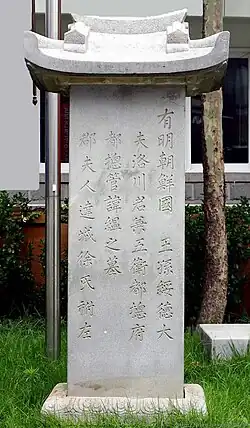 有明朝鮮國 王孫綏德大
夫洛川君兼五衛都摠府
都摠管諱縕之墓
郡夫人達城徐氏祔左